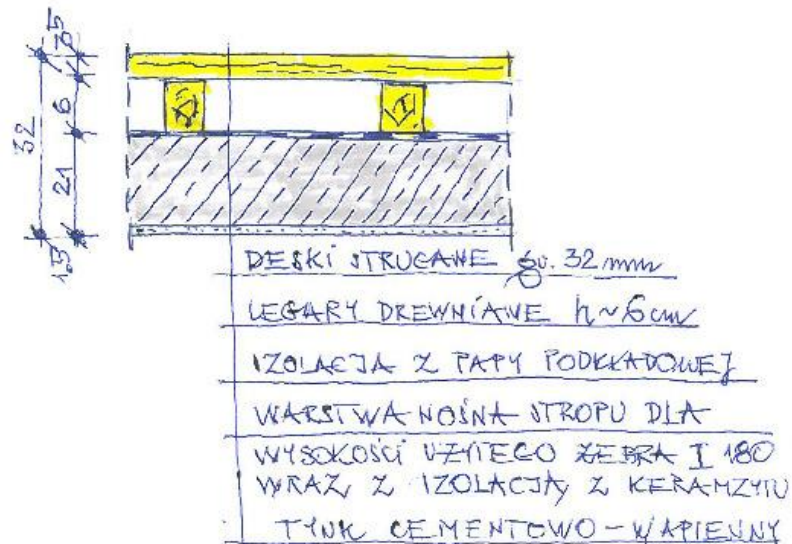 32
3,5
6
21
1,5
DESKI STRUGANE gr. 32 mm
LEGARY DREWNIANE h~6cm
IZOLACJA Z PAPY PODKŁADOWEJ
WARSTWA NOŚNA STROPU DLA
WYSOKOŚCI UŻYTEGO ŻEBRA I 180
WRAZ Z IZOLACJĄ Z KERAMZYTU
TYNK CEMENTOWO-WAPIENNY